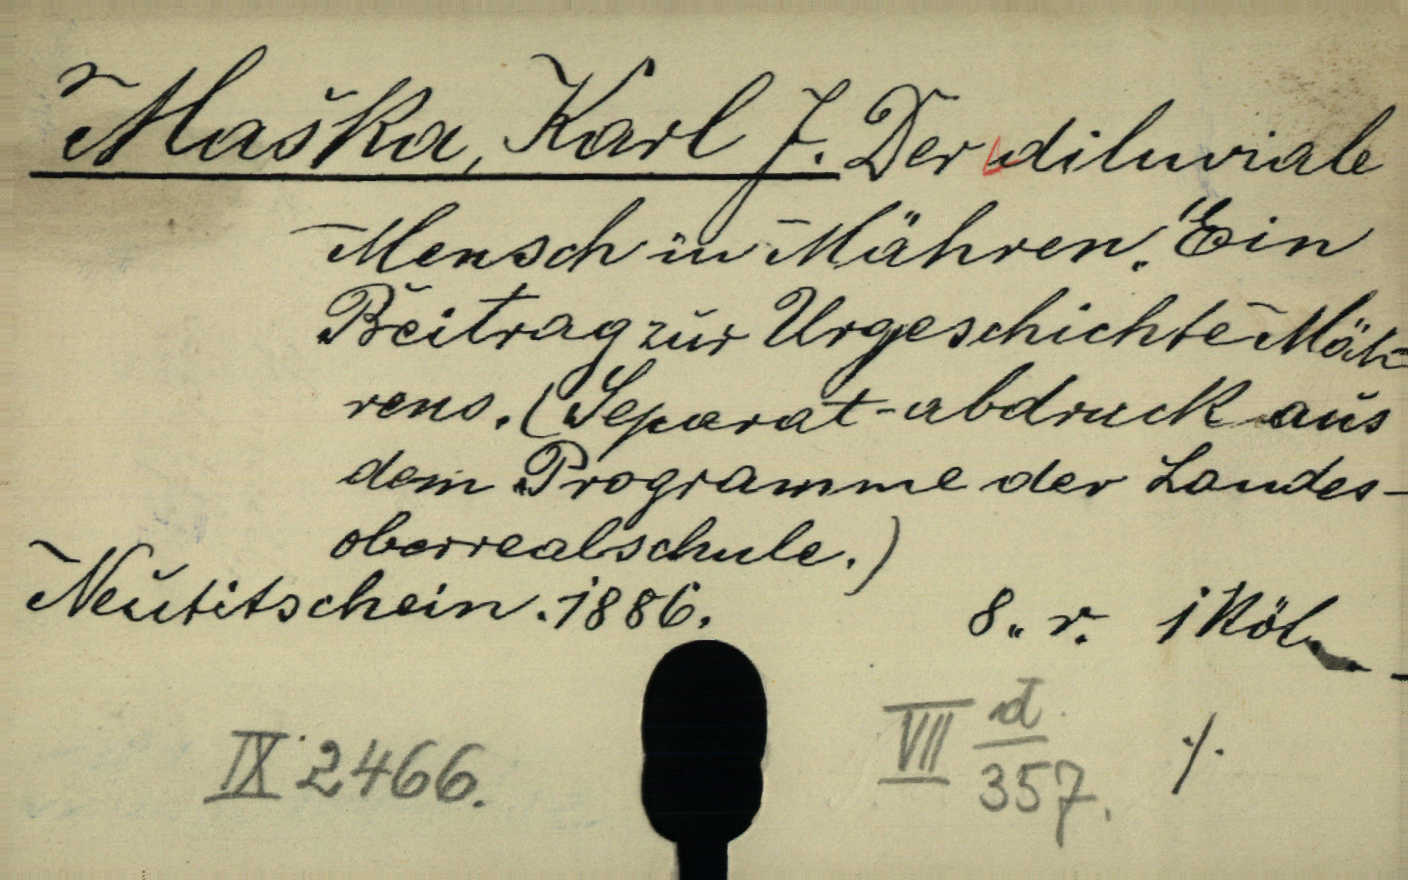 Maška, Karl J. Der diluviale
Mensch in Mähren. Ein
Beitrag zur Urgeschichte Mäh-
rens. (Separat-abdruck aus
dem Programme der Landes-
oberrealschule.)
Neutitschein. 1886. 8. r. 1 Köt
IX 2466. VII d/357. ·/.